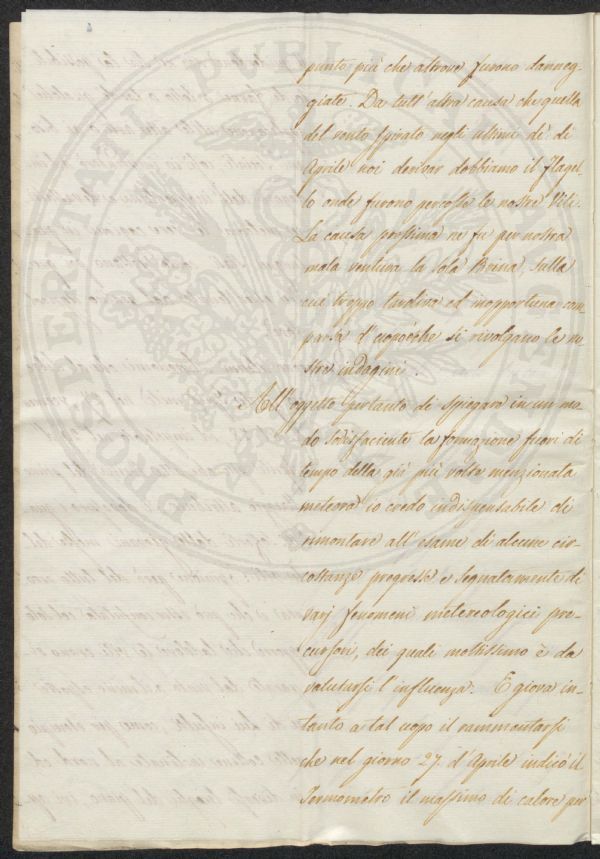 punto più che altrove furono danneg-
giate. Da tutt'altra causa che quella
del vento spirato negli ultimi dì di
Aprile noi derivar dobbiamo il flagel-
lo onde furono percosse le nostre Viti.
La causa prossima ne fu per nostra
mala ventura la sola Brina, sulla
cui troppo tardiva ed inopportuna com
parsa d'uopo è che si rivolgano le no
stre indagini.
All'oggetto pertanto di spiegare in un mo-
do sodisfaciente la formazione fuori di
tempo della già più volte menzionata
meteora io credo indispensabile di
rimontare all'esame di alcune cir-
costanze pregresse e segnalamente di
varj fenomeni metereologici pre-
cursori, dei quali moltissimo è da
valutarsi l'influenza. E giova in-
tanto a tal uopo il rammontarsi
che nel giorno 27. d'Aprile indicò il
Termometro il massimo di calore per